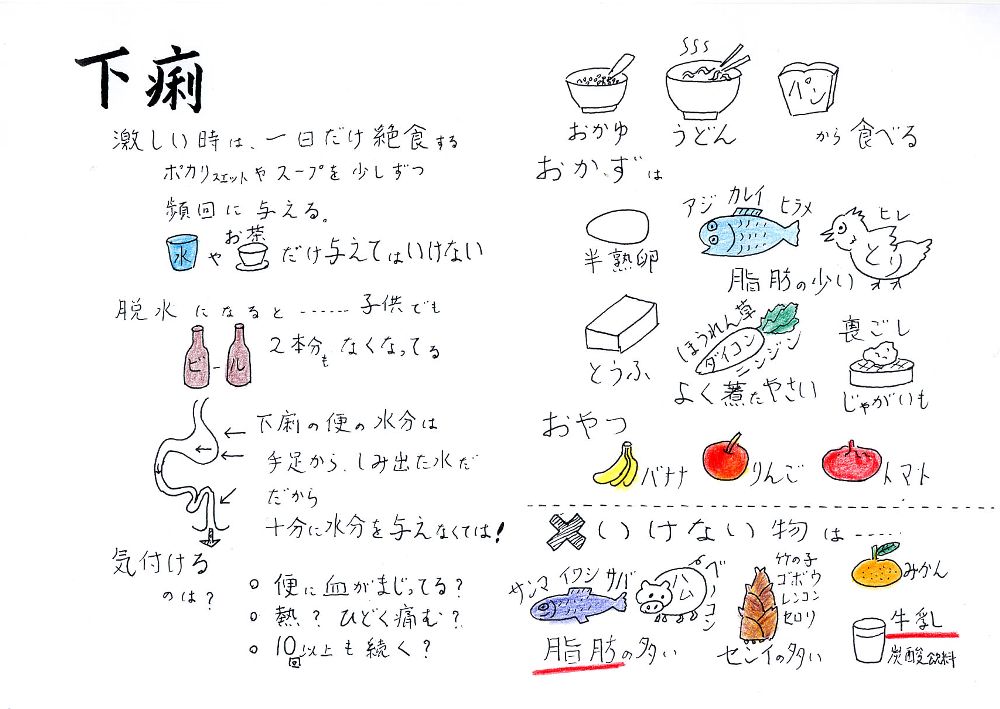 下痢
激しい時は、一日だけ絶食する
ポカリスエットやスープを少しずつ
頻回に与える。
水 や お茶 だけ与えてはいけない
脱水になると……子供でも
ビール 2本分も なくなってる
下痢の便の水分は
手足から、しみ出た水だ
だから
十分に水分を与えなくては!
気付ける
のは?
便に血がまじってる?
熱? ひどく痛む?
10回以上も続く?
おかゆ うどん パン から食べる
おかずは
半熟卵
アジ カレイ ヒラメ
ヒレ
とり
脂肪の少い
とうふ
ほうれん草
ダイコン
ニンジン
よく煮たやさい
裏ごし
じゃがいも
おやつ
バナナ りんご トマト
いけない物は……
サンマ イワシ サバ
ハム
ベーコン
脂肪の多い
竹の子
ゴボウ
レンコン
セロリ
センイの多い
みかん
牛乳
炭酸飲料